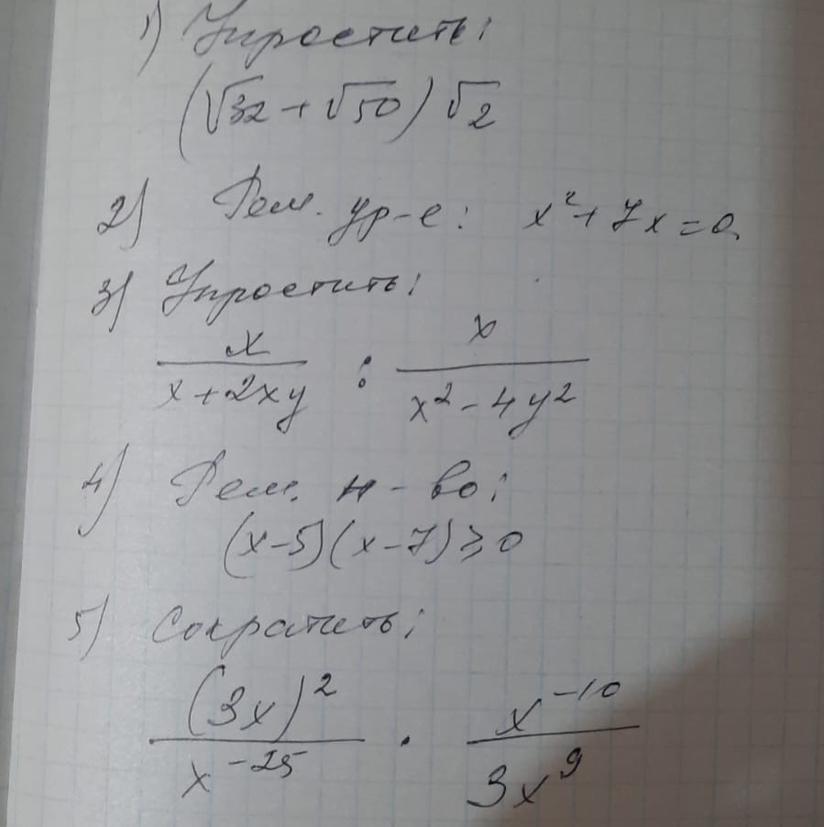 1) Упростить:
(√32 + √50) √2
2) Реш. ур-е: x² + 7x = 0
3) Упростить:
x/(x + 2xy) : x/(x² - 4y²)
4) Реш. н-во:
(x-5)(x-7) ≥ 0
5) Сократить:
(3x)²/x⁻²⁵ · x⁻¹⁰/3x⁹